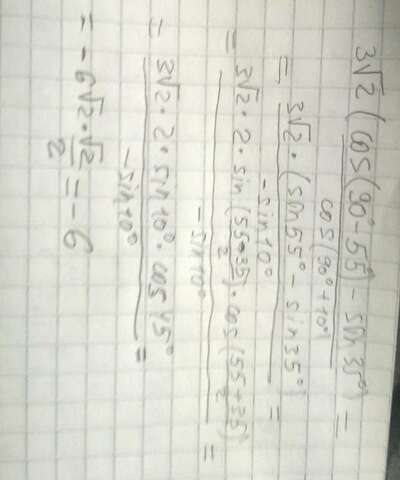 3√2 (cos(90°-55°) - sin35°) / cos(90°+10°) =
= 3√2 · (sin55° - sin35°) / -sin10° =
= 3√2 · 2 · sin((55-35)/2) · cos((55+35)/2) / -sin10° =
= 3√2 · 2 · sin10° · cos45° / -sin10° =
= -6√2 · √2/2 = -6